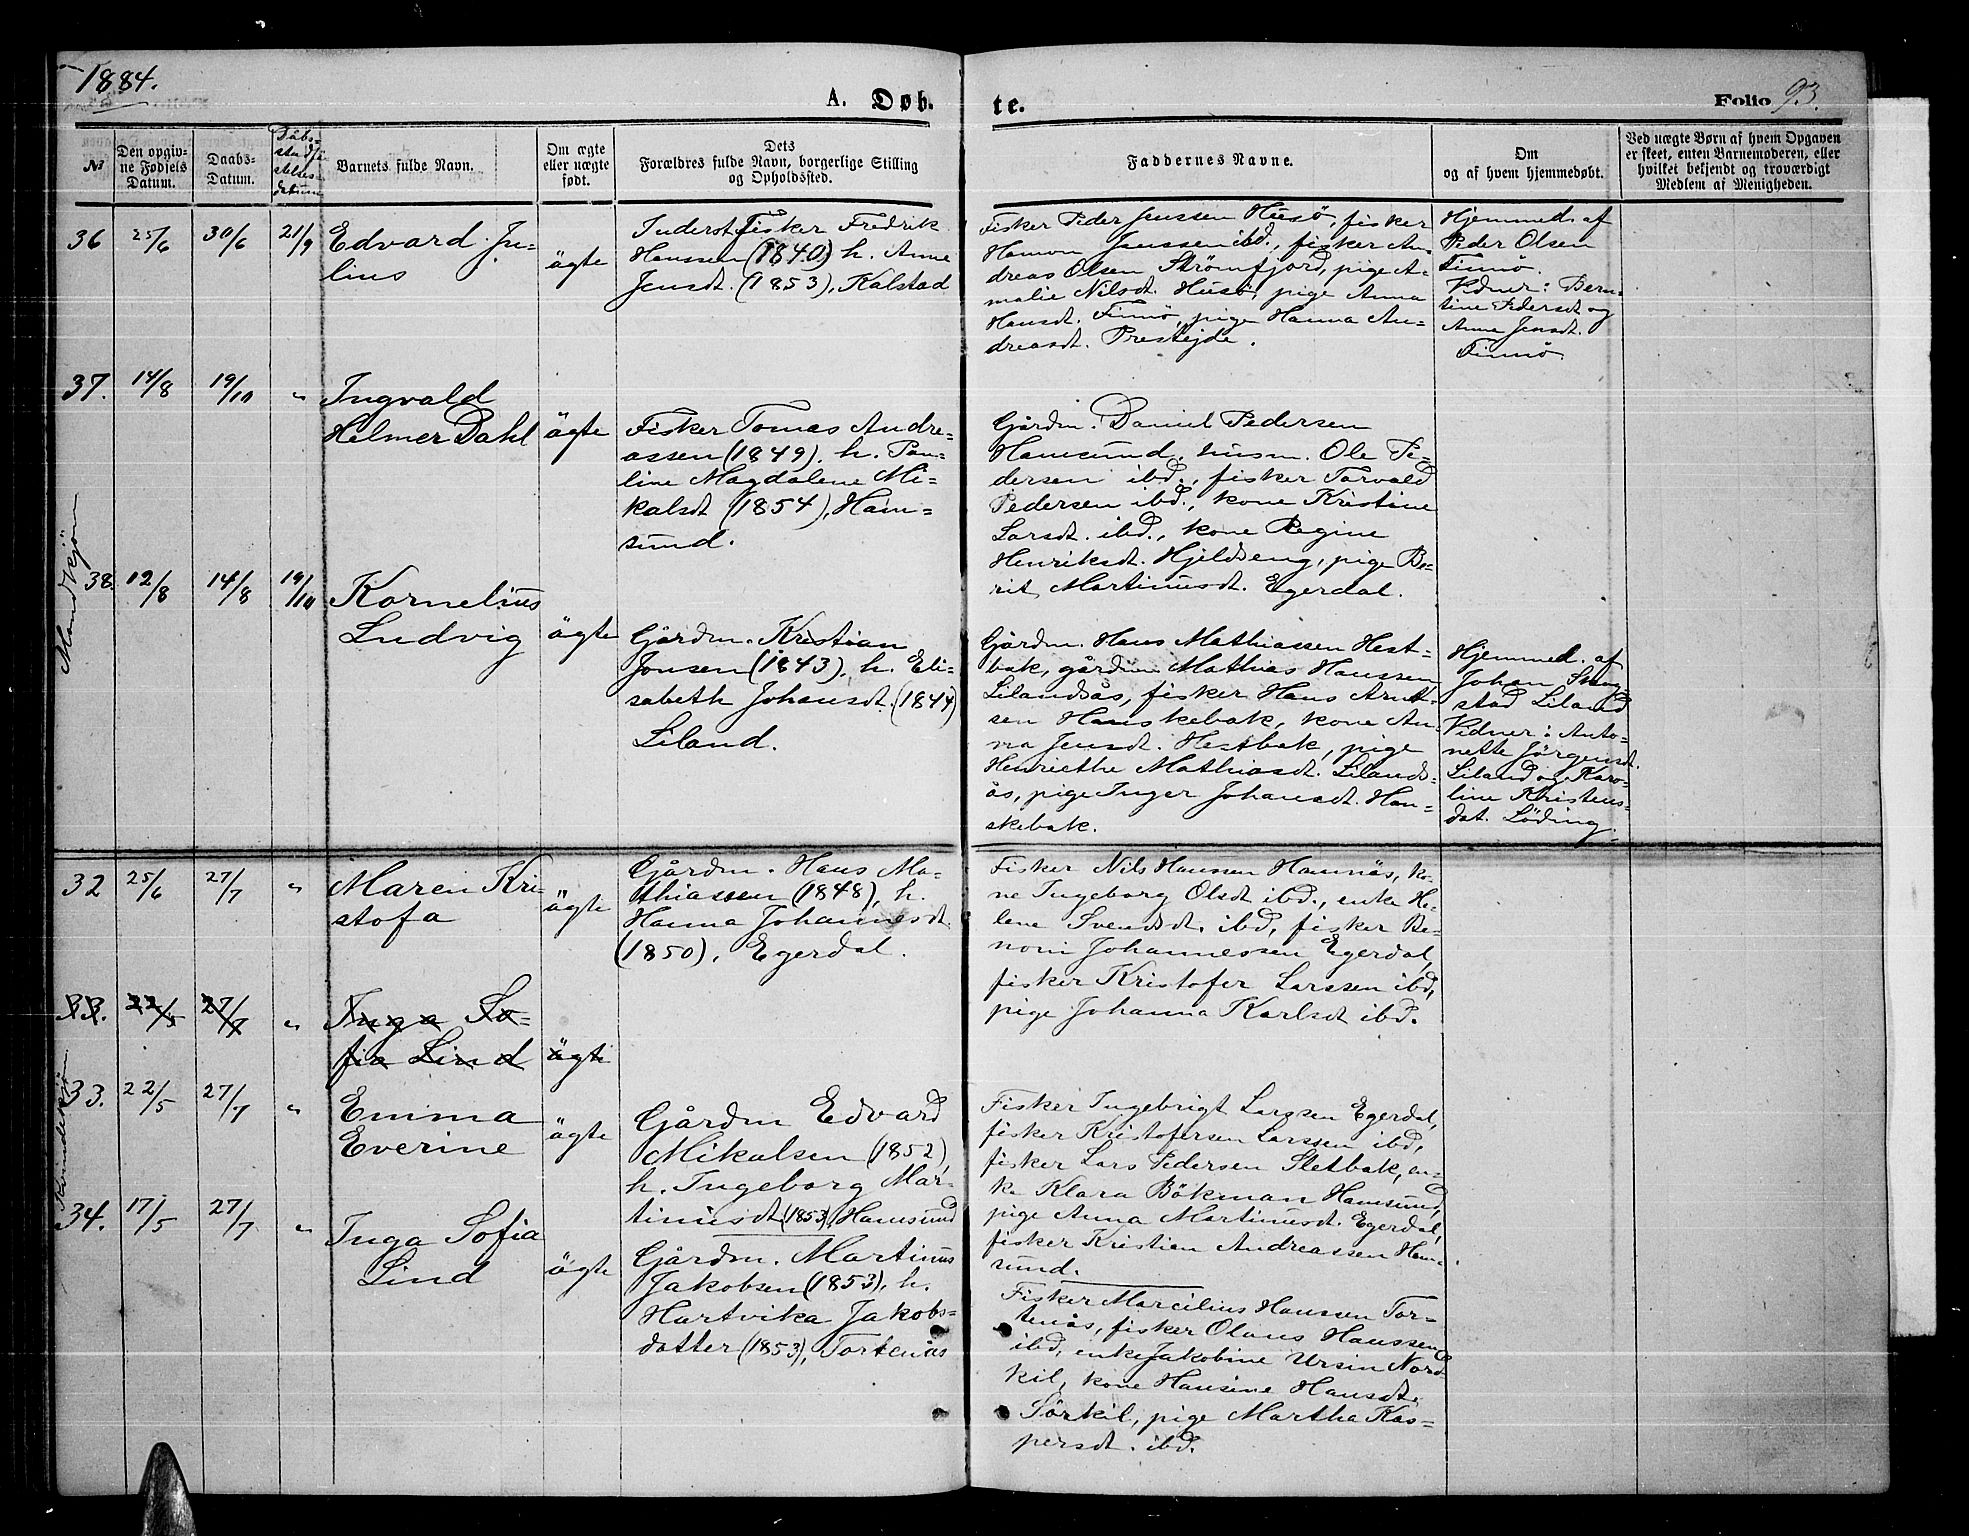 1884.
A. Døb-
te.
Folio 93.
№
Den opgiv-
ne Fødsels
Datum.
Daabs-
Datum.
Dåbs-
stadfæ
stelses-
datum
Barnets fulde Navn.
Om ægte
eller uægte
født.
Dets
Forældres fulde Navn, borgerlige Stilling
og Opholdssted.
Faddernes Navne.
Om
og af hvem hjemmedøbt.
Ved uægte Børn af hvem Opgaven
er skeet, enten Barnemoderen, eller
hvilket bekjendt og troværdigt
Medlem af Menigheden.
Mandkjøn
36 25/6 30/6 21/9
Edvard Ju-
lius
ägte
Inderst, Fisker Fredrik
Hanssen (1840) h. Anne
Jensdt. (1853), Kalstad
Fisker Peder Jenssen Husö, fisker
Hamon Jenssen ibd., fisker An-
dreas Olsen Strømfjord, pige A-
malie Nilsdt. Husö, pige Anna
Hansdt. Finnö, pige Hanna An-
dreasdt. Presteide.
Hjemmed. af
Peder Olsen
Finnö.
Vidner: Bern-
tine Pedersdt og
Anna Jensdt.
Finnö
37. 14/8 19/10 "
Ingvald
Helmer Dahl
ägte
Fisker Tomas Andre-
assen (1849). h. Pau-
line Magdalene Mi-
kalsdt (1854), Ham-
sund.
Gårdm. Daniel Pedersen
Hamsund, husm. Ole Pe-
dersen ibd., fisker Torvald
Pedersen ibd., kone Kristine
Larsdt. ibd., kone Regine
Henriksdt. Hjeldseng, pige Be-
rit Martinusdt. Egerdal.
38. 12/8 14/8 19/10
Kornelius
Ludvig
ägte
Gårdm. Kristian
Jonsen (1843). h. Eli-
sabeth Johansdt. (1844)
Liland.
Gårdm. Hans Mathiassen Hest-
bak, gårdm Mathias Hanssen
Lilandsås, fisker Hans Arnt-
sen Hanskebak, kone An-
na Jensdt. Hestbak, pige
Henriethe Mathiasdt. Lilands-
ås, pige Inger Johansdt. Han-
skebak.
Hjemmed. af
Johan
stad Liland
Vidner: Anto-
nette Jörgensdt.
Liland og Karo-
line Kristens-
dat. Löding.
Kvindekjøn
32 25/6 27/7 "
Maren Kri-
stofa
ägte
Gårdm. Hans Ma-
thiassen (1848), h.
Hanna Johannesdt.
(1850), Egerdal.
Fisker Nils Hanssen Hamnäs, ko-
ne Ingeborg Olsdt ibd., enke He-
lene Svendsdt. ibd, fisker Be-
noni Johannessen Egerdal,
fisker Kristofer Larssen ibd,
pige Johanna Karlsdt ibd.
33. 22/5 27/7 "
Inga So-
fia Lind
ägte
33. 22/5 27/7 "
Emma
Everine
ägte
Gårdm Edvard
Mikalsen (1852),
h. Ingeborg Mar-
tinusdt (1853) Hamsund
Fisker Ingebrigt Larssen Egerdal,
fisker Kristofersen Larssen ibd,
fisker Lars Pedersen Sletbak, en-
ke Klara Bökman Hamsund,
pige Anna Martinusdt. Egerdal,
fisker Kristian Andreassen Ham-
sund.
34. 17/5 27/7 "
Inga Sofia
Lind
ägte
Gårdm. Martinus
Jakobsen (1853), h.
Hartvika Jakobs-
datter (1853), Tortenäs
Fisker Marcilius Hanssen Tor-
tenäs, fisker Olaus Hanssen
ibd, enke Jakobine Ursin Nord-
kil, kone Hansine Hansdt.
Sörkil, pige Martha Kas-
persdt. ibd.